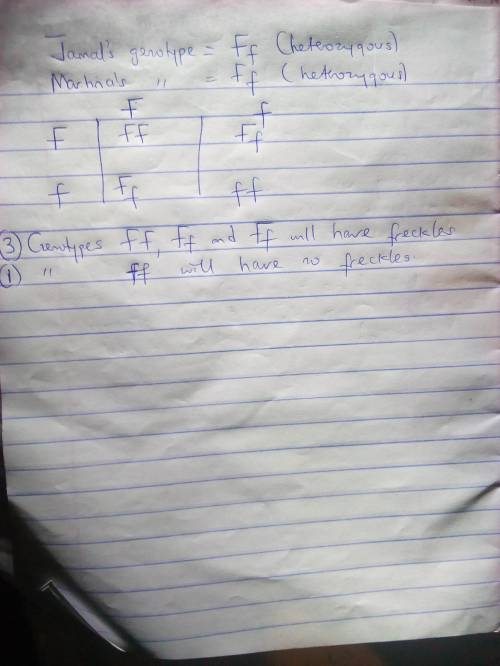 Jamal's genotype = Ff (heterozygous)
Martina's " = Ff (hetrozygous)
F f
F FF Ff
f Ff ff
③ Genotypes FF, Ff and Ff will have freckles
① " ff will have no freckles.